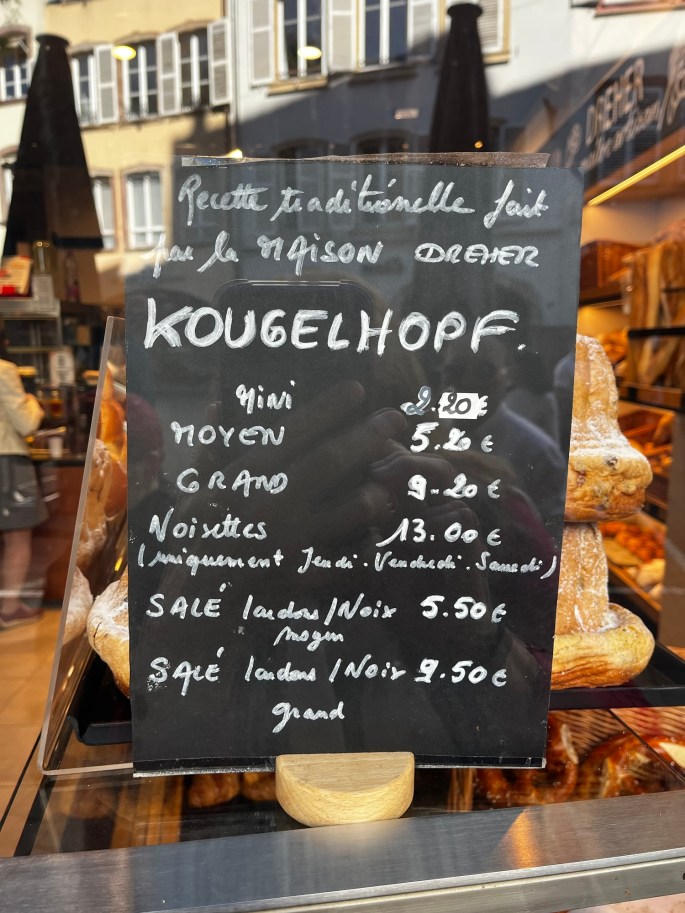 Recette traditionelle fait
par la MAISON DREHER
KOUGELHOPF.
MINI 2.20€
MOYEN 5.20€
GRAND 9.20€
Noisettes 13.00€
(uniquement Jeudi. Vendredi. Samedi)
SALÉ lardons/Noix 5.50€
moyen
SALÉ lardons/Noix 9.50€
grand
DREHER